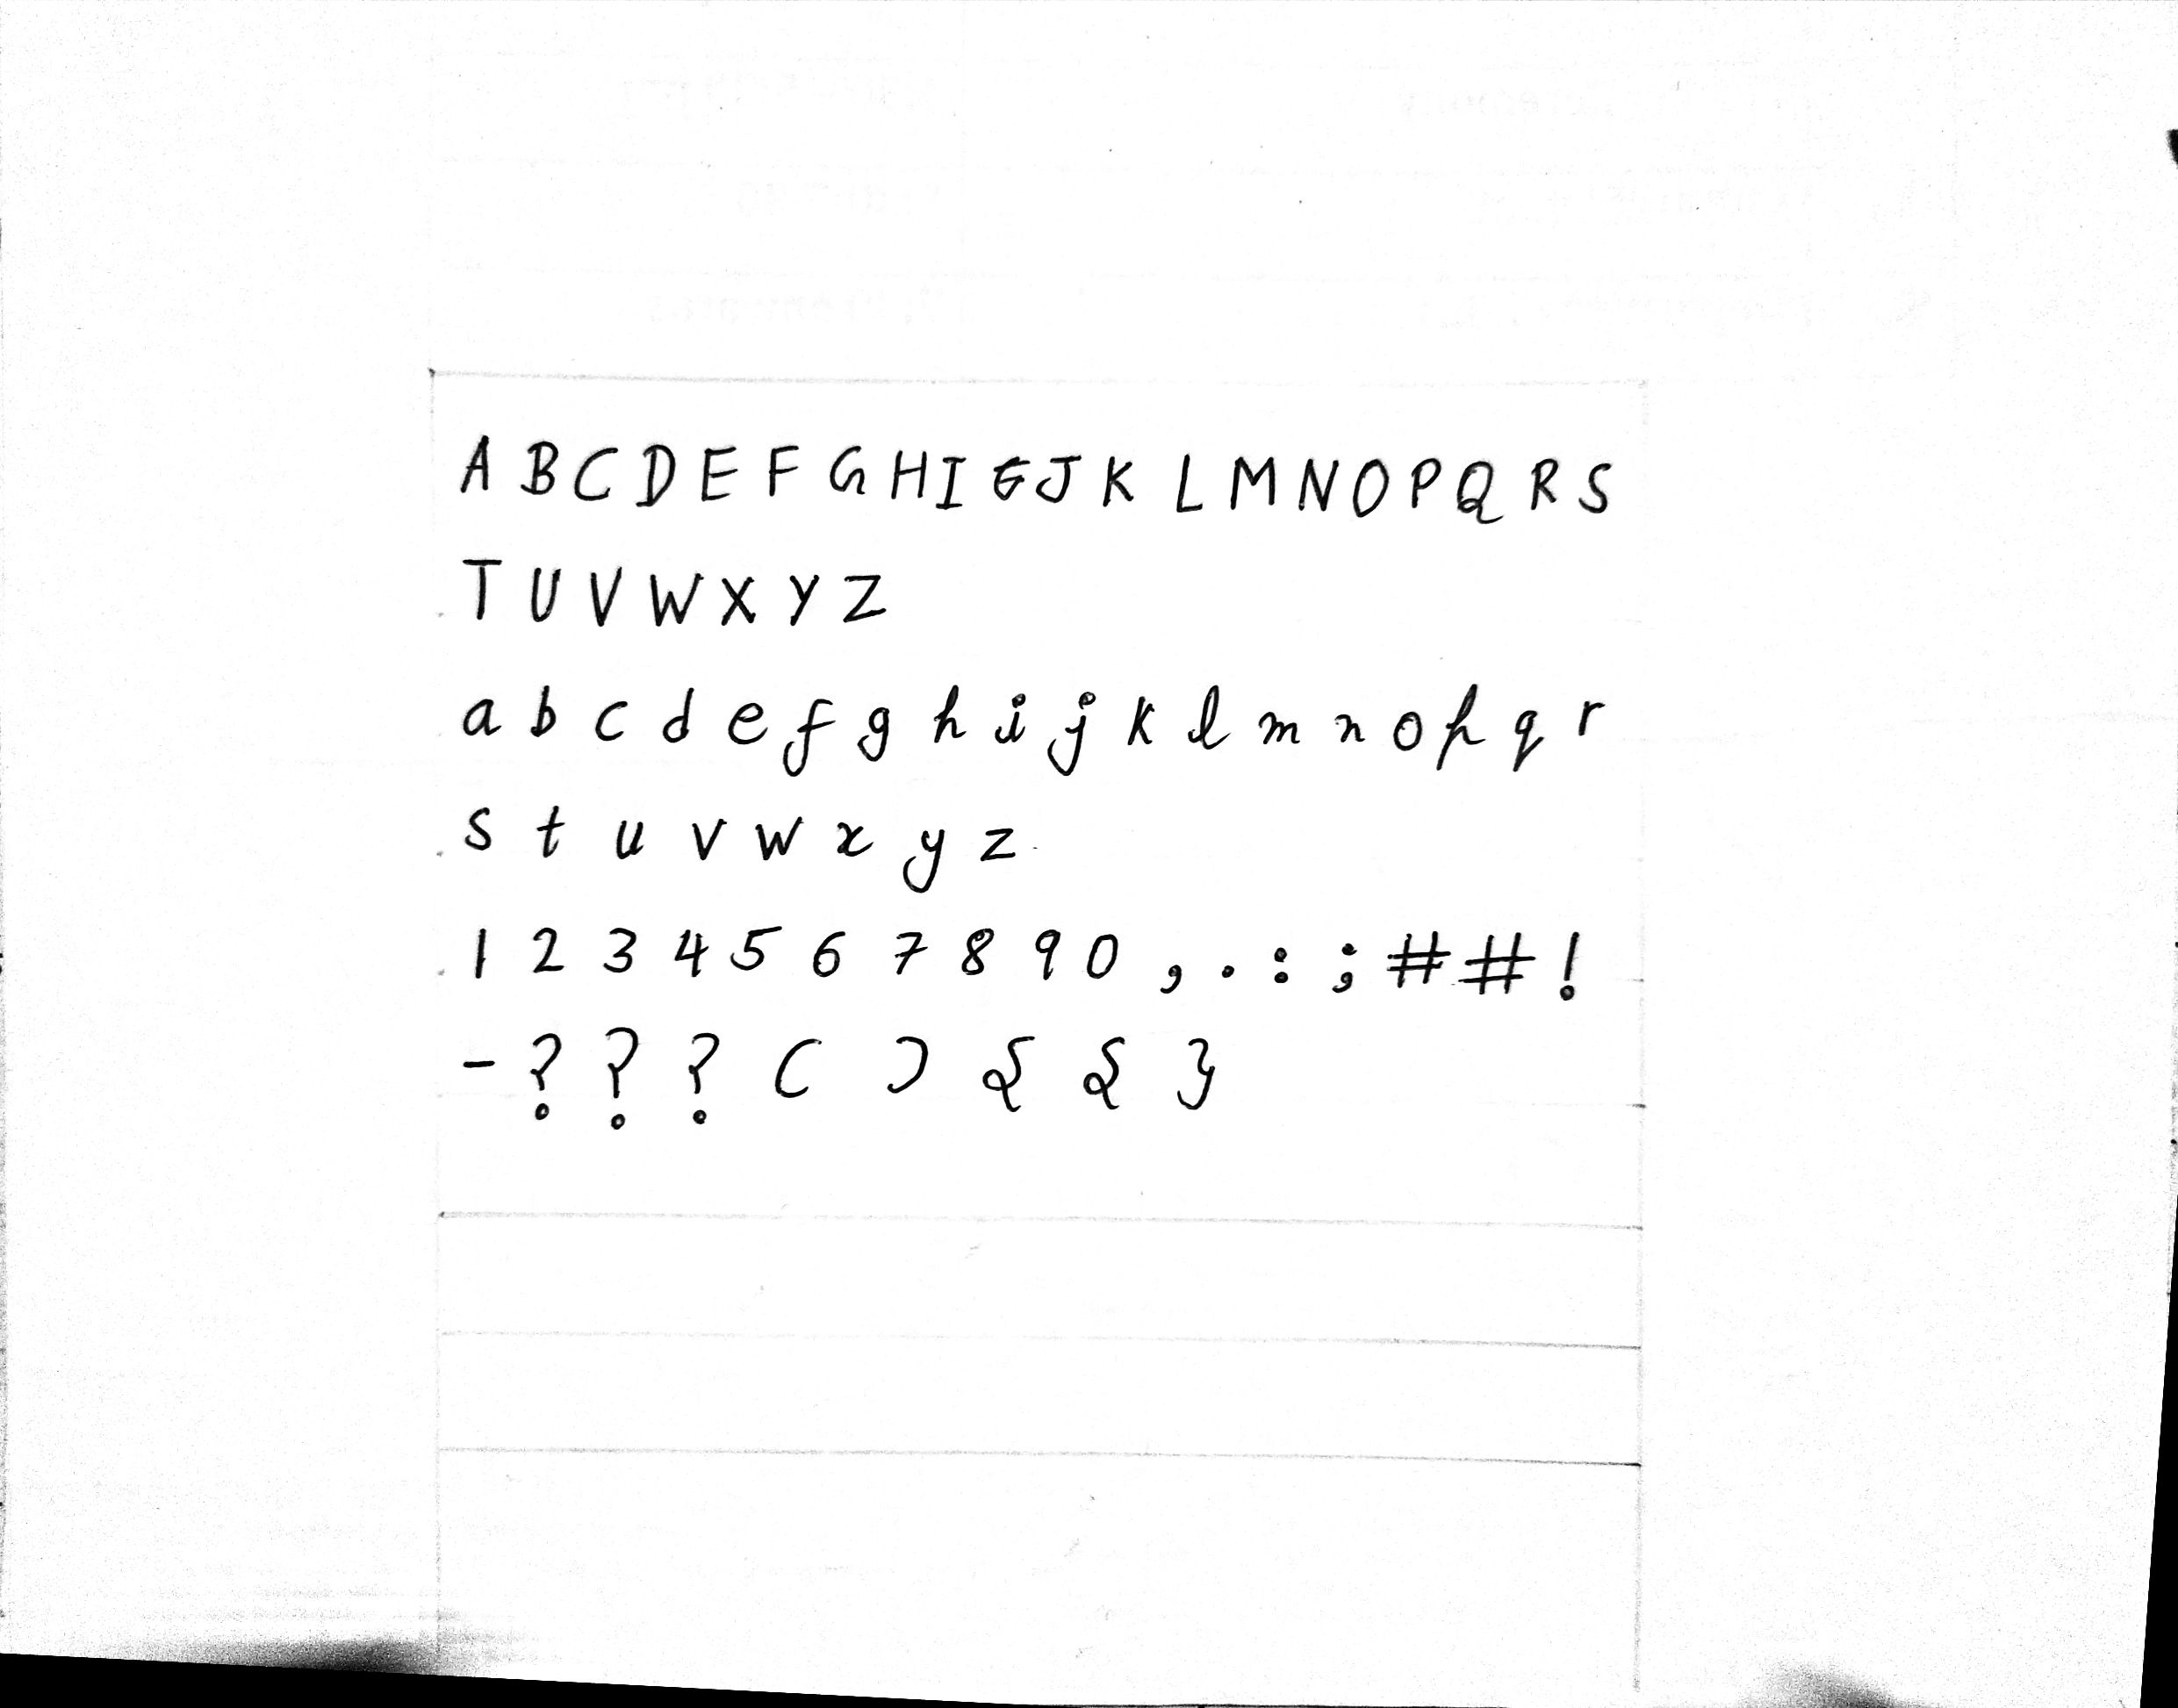 A B C D E F G H I G J K L M N O P Q R S
T U V W X Y Z
a b c d e f g h i j k l m n o p q r
s t u v w x y z
1 2 3 4 5 6 7 8 9 0 , . : ; # # !
- ? ? ? ( ) { { }